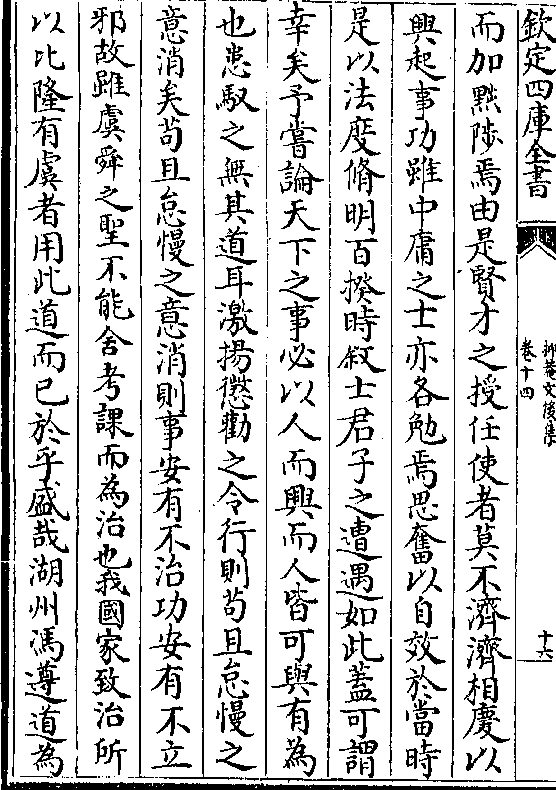 欽定四庫全書
抑菴文後集
卷十四
十六
而加黜陟焉由是賢才之授任使者莫不濟濟相慶以
興起事功雖中庸之士亦各勉焉思奮以自效於當時
是以法度脩明百揆時叙士君子之遭遇如此蓋可謂
幸矣予嘗論天下之事必以人而興而人皆可與有為
也患馭之無其道耳激揚懲勸之令行則苟且怠慢之
意消矣苟且怠慢之意消則事安有不治功安有不立
邪故雖虞舜之聖不能舍考課而為治也我國家致治所
以比隆有虞者用此道而已於乎盛哉湖州馮遵道為